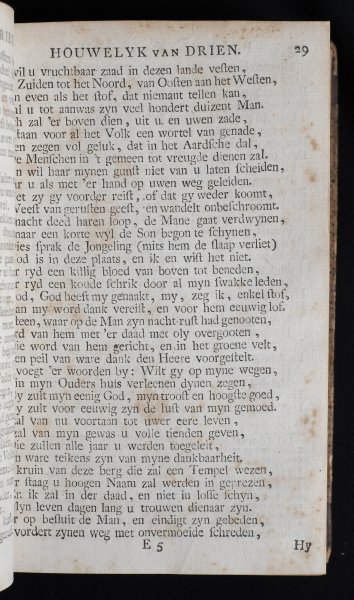 HOUWELYK VAN DRIEN. 29
wil u vruchtbaar zaad in dezen lande vesten,
Zuiden tot het Noord, van Oosten aan het Westen,
n even als het stof, dat niemant tellen kan,
al u tot aanwas zyn veel hondert duizent Man.
h zal 'er boven dien, uit u. en uwen zade,
taan voor al het Volk een wortel van genade,
en zegen vol geluk, dat in het Aardsche dal,
e Menschen in 't gemeen tot vreugde dienen zal.
n wil haar mynen gunst niet van u laten scheiden,
ar u als met 'er hand op uwen weg geleiden.
et zy gy voorder reist, of dat gy weder koomt,
Weest van gerusten geest, en wandelt onbeschroomt.
nacht deed haren loop, de Mane gaat verdwynen,
naar een korte wyl de Son begon te schynen,
ies sprak de Jongeling (mits hem de slaap verliet)
od is in deze plaats, en ik en wist het niet.
r ryd een killig bloed van boven tot beneden,
r ryd een koude schrik door al myn swakke leden,
od, God heeft my genaakt, my, zeg ik, enkel stof,
an my word dank vereist, en voor hem eeuwig lof.
teen, waar op de Man zyn nacht-rust had genooten,
rd van hem met 'er daad met oly overgooten,
ie word van hem gericht, en in het groene velt,
en peil van ware dank den Heere voorgestelt.
voegt 'er woorden by: Wilt gy op myne wegen,
in myn Ouders huis verleenen dynen zegen,
y zult myn eenig God, myn troost en hoogste goed,
y zult voor eeuwig zyn de lust van myn gemoed.
zal van nu voortaan tot uwer eere leven,
zal van myn gewas u volle tienden geven,
ie zullen alle jaar u werden toegeleit,
n ware teikens zyn van myne dankbaarheit.
kruin van deze berg die zal een Tempel wezen,
r staag u hoogen Naam zal werden in geprezen,
r ik zal in der daad, en niet in losse schyn,
lyn leven dagen lang u trouwen dienaar zyn.
r op besluit de Man, en eindigt zyn gebeden,
vordert zynen weg met onvermoeide schreden,
E 5 Hy